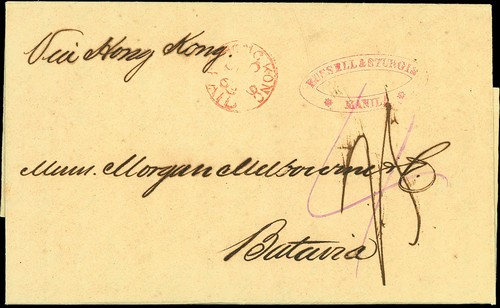 Via Hong Kong.
HONG KONG
RUSSELL & STURGIS
MANILA
Messrs. Morgan Melbourne & Co.
Batavia